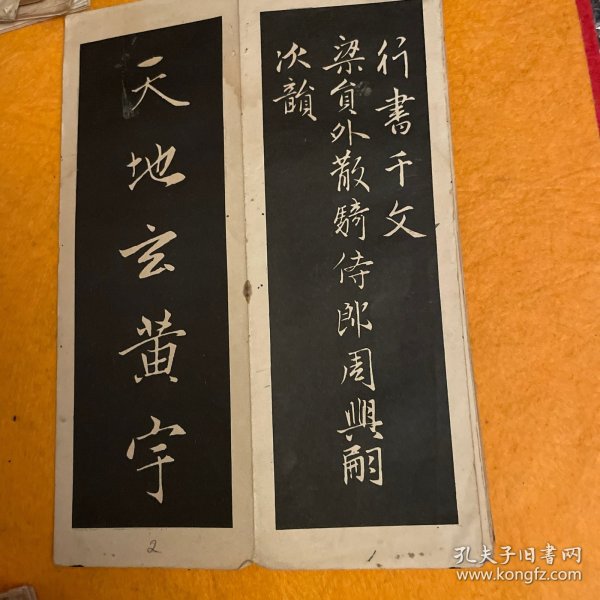 行書千文
梁貟外散騎侍郎周興嗣
次韻
天地玄黄宇
1
2
孔夫子旧書网
www.kongfz.com